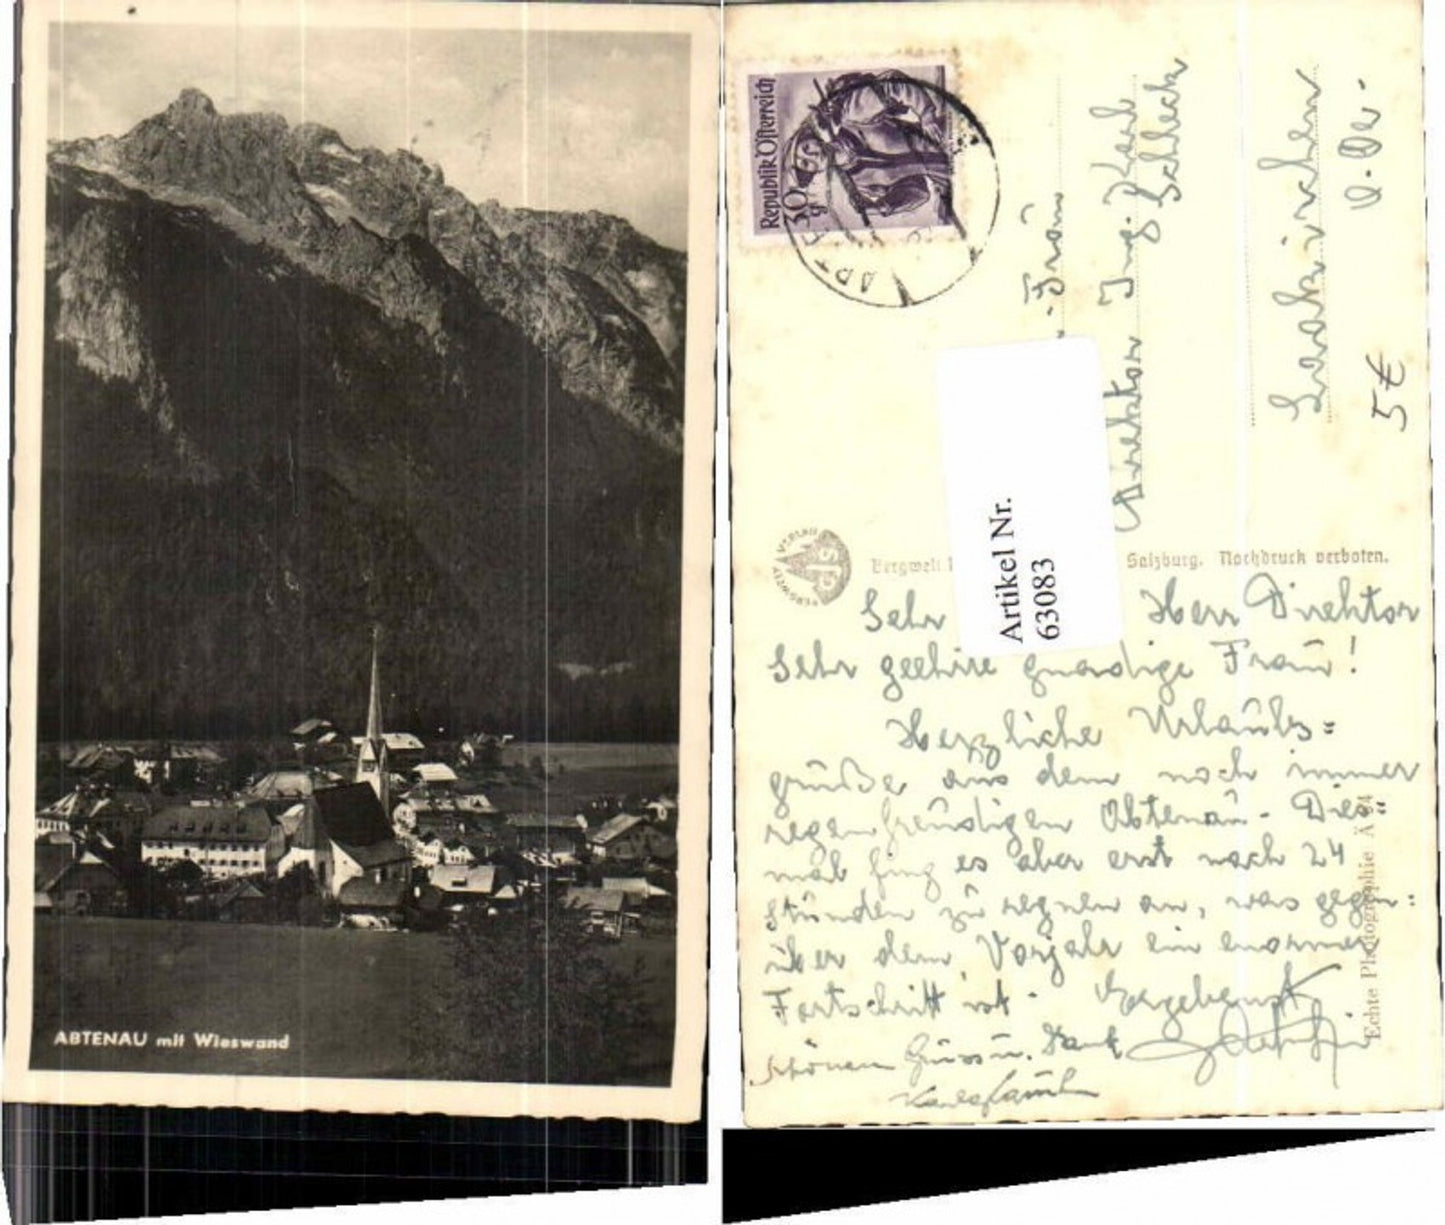 ABTENAU mit Wieswand
Republik Österreich
30 g
- Frau
Direktor Ing. Karl
Scheck
Laakirchen
O.Oe.
5€
Artikel Nr.
63083
BERGWELT VERLAG
Bergwelt
Salzburg. Nachdruck verboten.
Sehr Herr Direktor
Sehr geehrte gnädige Frau!
Herzliche Urlaubs=
grüße aus dem noch immer
regenfreudigen Abtenau. Dies=
mal fing es aber erst nach 24
Stunden zu regnen an, was gegen=
über dem Vorjahr ein enormer
Fortschritt ist. Ergebenst
schönen Gruss u. Dank
Echte Photographie